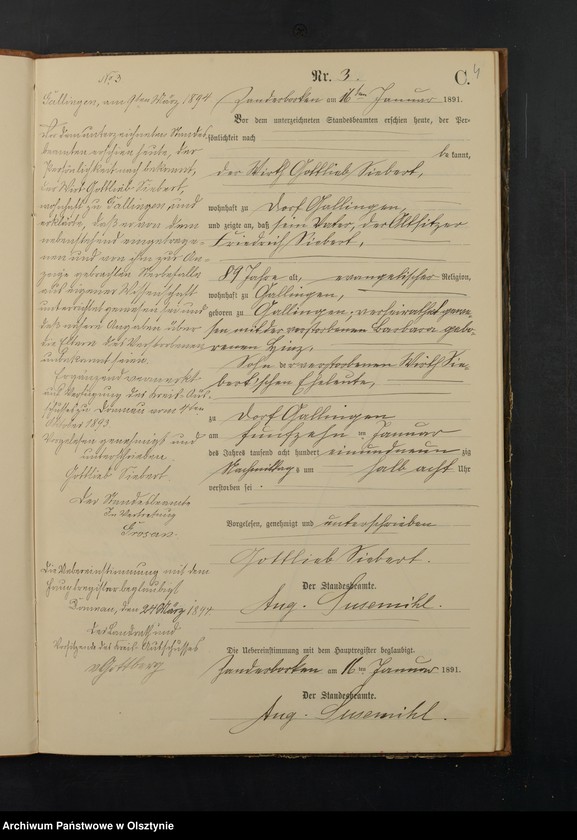 No 3
Gallingen, am 9ten März 1894
Vor dem unterzeichneten Standes-
beamten erschien heute, der
Persönlichkeit nach bekannt,
der Wirt Gottlieb Siebert,
wohnhaft zu Gallingen, und
erklärte, daß er von dem
nebenstehend eingetrage-
nen und von ihm zur An-
zeige gebrachten Sterbefalle
aus eigener Wissenschaft
unterrichtet gewesen sei und
daß nähere Angaben über
die Eltern des Verstorbenen
unbekannt seien.
Ergänzend vermerkt
auf Verfügung des Kreis-Aus-
schusses zu Domnau vom 4ten
Oktober 1893
Vorgelesen genehmigt und
unterschrieben
Gottlieb Siebert.
Der Standesbeamte
In Vertretung
Die Uebereinstimmung mit dem
Hauptregister beglaubigt
Domnau, den 24 März 1894
Der Landrath und
Vorsitzende des Kreis-Ausschusses
vGottberg
Nr. 3.
C. 4
Sanderbocken am 16ten Januar 1891.
Vor dem unterzeichneten Standesbeamten erschien heute, der Per-
sönlichkeit nach
bekannt,
der Wirth Gottlieb Siebert,
wohnhaft zu Dorf Gallingen,
und zeigte an, daß sein Vater, der Altsitzer
Friedrich Siebert,
87 Jahre alt, evangelischer Religion,
wohnhaft zu Gallingen,
geboren zu Gallingen, verheirathet gewe-
sen mit der verstorbenen Barbara gebo-
renen Hinz,
Sohn der verstorbenen Wirth Sie-
bertschen Eheleute,
zu Dorf Gallingen
am fünfzehn ten Januar
des Jahres tausend acht hundert einundneun zig
Nachmittags um halb acht Uhr
verstorben sei.
Vorgelesen, genehmigt und unterschrieben
Gottlieb Siebert.
Der Standesbeamte.
Aug. Susemihl.
Die Uebereinstimmung mit dem Hauptregister beglaubigt.
Sanderbocken am 16ten Januar 1891.
Der Standesbeamte.
Aug. Susemihl.
Archiwum Państwowe w Olsztynie